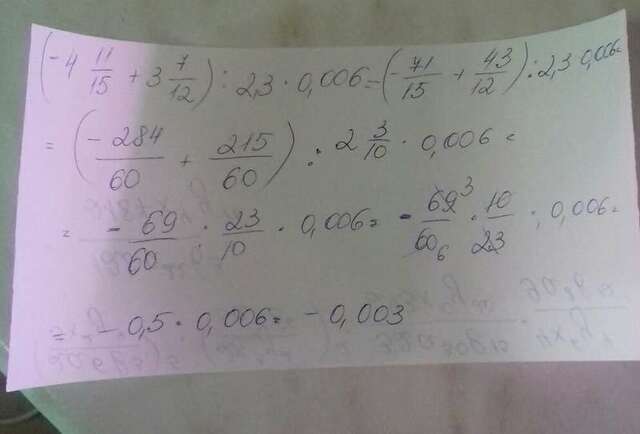 (-4 11/15 + 3 7/12) : 2,3 · 0,006 = (-71/15 + 43/12) : 2,3 · 0,006 =
= (-284/60 + 215/60) : 2 3/10 · 0,006 =
= -69/60 : 23/10 · 0,006 = -69³/60₆ · 10/23 · 0,006 =
= -0,5 · 0,006 = -0,003